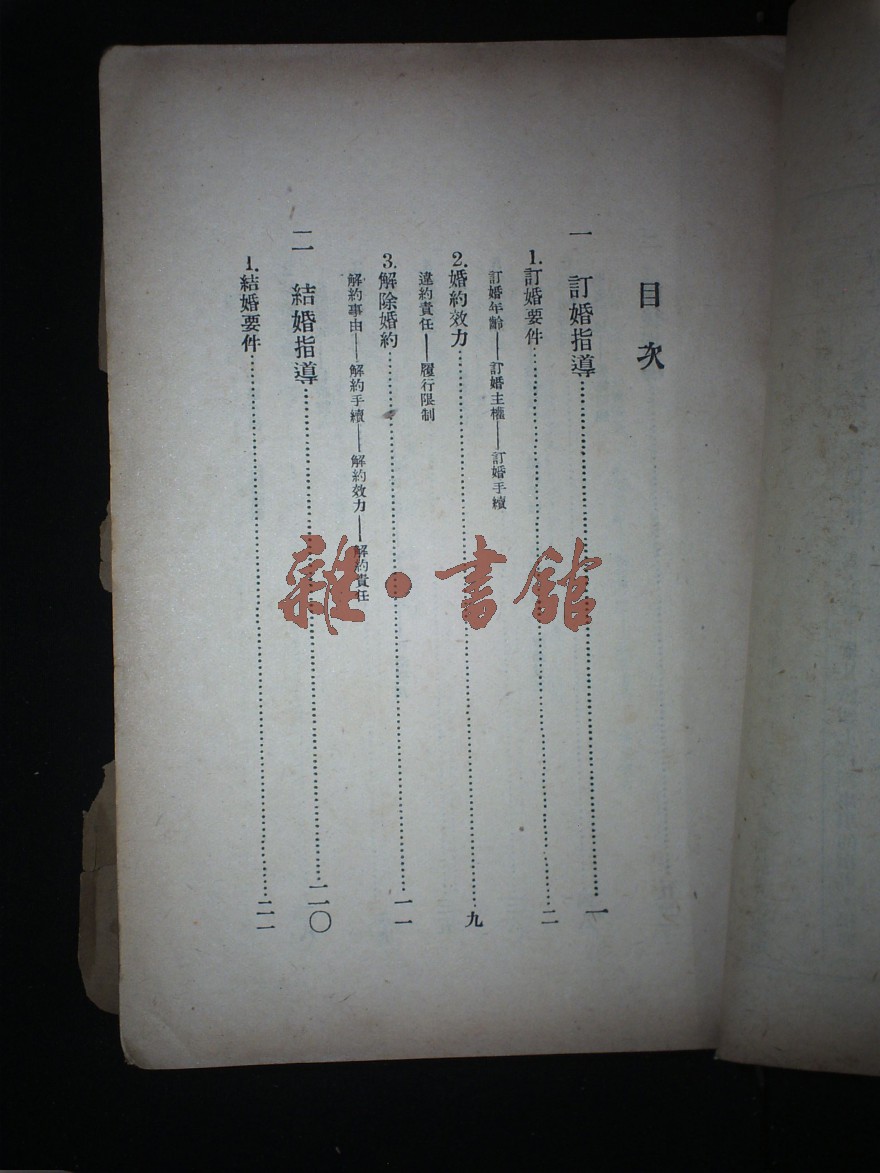 目次
一 訂婚指導……一
1. 訂婚要件……二
訂婚年齡——訂婚主權——訂婚手續
2. 婚約效力……九
違約責任——履行限制
3. 解除婚約……一一
解約事由——解約手續——解約效力——解約責任
二 結婚指導……二〇
1. 結婚要件……二一
雜·書館